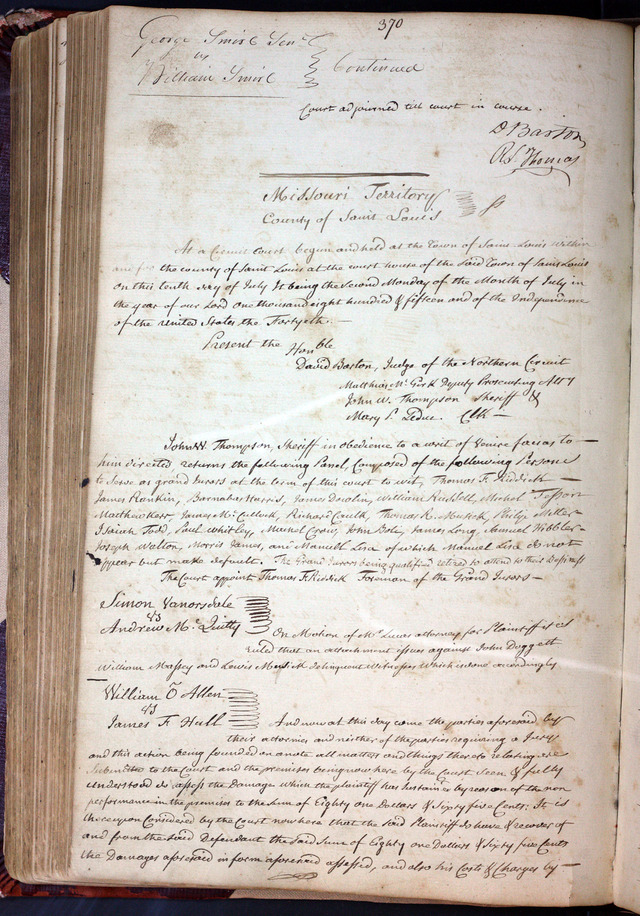 370
George Smirl Senr
vs
William Smirl
Continued
Court adjourned till court in course.
D Barton
R S Thomas
Missouri Territory
County of Saint Louis
At a Circuit Court begun and held at the Town of Saint Louis within
and for the county of Saint Louis at the court house of the Said Town of Saint Louis
on this tenth day of July It being the Second Monday of the Month of July in
the year of our Lord one thousand eight hundred & fifteen and of the Independence
of the United States the Fortyeth. —
Present the Honble
David Barton, Judge of the Northern Circuit
Matthias McGirk Deputy Prosecuting Atty
John W. Thompson Sheriff &
Mary P. Leduc. Clk —
John W. Thompson, Sheriff in obedience to a writ of Venire facias to —
him directed, returns the following Panel, Composed of the following Persons
to Serve as grand Jurors at the term of this court to wit, Thomas F. Riddick —
James Rankin, Barnabas Harris, James Doolin, William Michel
Matthew Kerr, James McCulloch, Richard Caulk, Thomas R. Musick, Philip Miller
Isaiah Todd, Paul Whitley, John Bole, James Long, Samuel Hibbler
Joseph Walton, Morris James, and Manuel Lisa of which Manuel Lisa do not
appear but make default. The Grand Jurors being qualified retired to attend to their Business
The Court appoint Thomas F. Riddick Foreman of the Grand Jurors —
Simon Vanorsdale
vs
Andrew Mc Quitty
On Motion of Mr Lucas attorney for Plaintiff it is
ruled that an attachment issues against John Doggett
William Massey and Lewis Musick delinquent Witnesses Which is done accordingly
William O Allen
vs
James F Hull
And now at this day come the parties aforesaid by
their attornies and neither of the parties requiring a Jury
and this action being founded on a note all matters and things thereto relating are
Submitted to the Court and the premises being now here by the Court Seen & fully
Understood do assess the Damages which the plaintiff has Sustained by reason of the non
performance in the premises to the Sum of Eighty one Dollars & Sixty five Cents: It is
thereupon Considered by the Court now here that the Said Plaintiff do have & recover of
and from the Said Defendant the Said Sum of Eighty one Dollars & Sixty five Cents
the Damages aforesaid in form aforesaid assessed, and also his Costs & Charges by —